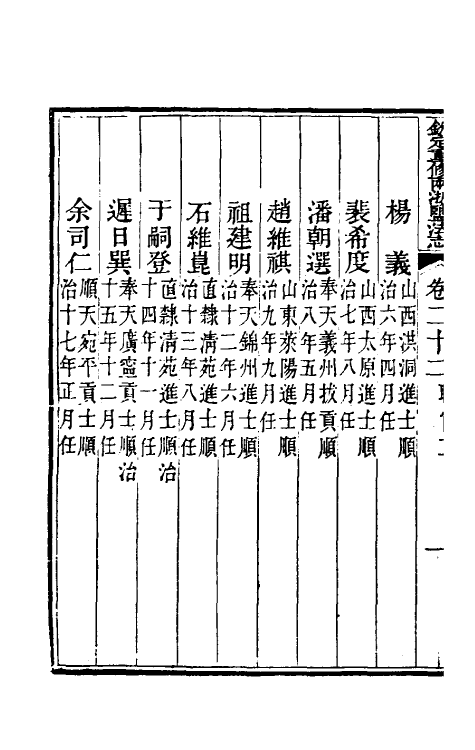 欽定重修兩浙鹽法志
卷二十二 職官二
一
楊義 山西洪洞進士順
治六年四月任
裴希度 山西太原進士順
治七年八月任
潘朝選 奉天義州拔貢順
治八年五月任
趙維祺 山東萊陽進士順
治九年九月任
祖建明 奉天錦州進士順
治十二年六月任
石維崑 直隸清苑進士順
治十三年八月任
于嗣登 直隸清苑進士順治
十四年十一月任
遲日巽 奉天廣寧貢士順治
十五年十二月任
余司仁 順天宛平貢士順
治十七年正月任